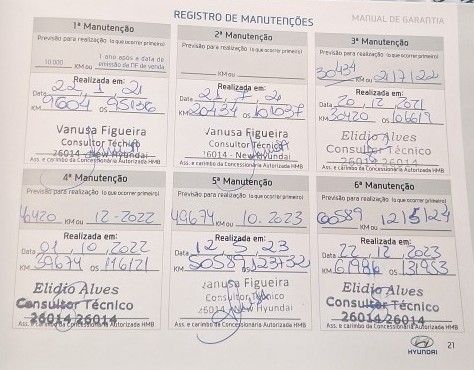 REGISTRO DE MANUTENÇÕES
MANUAL DE GARANTIA
1ª Manutenção
Previsão para realização (o que ocorrer primeiro)
10.000 KM ou 1 ano após a data de emissão da NF de venda
Realizada em:
Data 22, 1, 21
KM 9604 OS 95136
Vanusa Figueira
Consultor Técnico
26014 - New Hyundai
Ass. e carimbo da Concessionária Autorizada HMB
2ª Manutenção
Previsão para realização (o que ocorrer primeiro)
KM ou
Realizada em:
Data 21, 7, 21
KM 20434 OS 101037
Vanusa Figueira
Consultor Técnico
26014 - New Hyundai
Ass. e carimbo da Concessionária Autorizada HMB
3ª Manutenção
Previsão para realização (o que ocorrer primeiro)
30434 KM ou 21/7/22
Realizada em:
Data 20, 12, 2021
KM 30420 OS 106619
Elidio Alves
Consultor Técnico
26014 26014
Ass. e carimbo da Concessionária Autorizada HMB
4ª Manutenção
Previsão para realização (o que ocorrer primeiro)
40420 KM ou 12-2022
Realizada em:
Data 01, 10, 2022
KM 39674 OS 116121
Elidio Alves
Consultor Técnico
26014 26014
Ass. e carimbo da Concessionária Autorizada HMB
5ª Manutenção
Previsão para realização (o que ocorrer primeiro)
49674 KM ou 10.2023
Realizada em:
Data 12, 5, 23
KM 50589 OS 123732
Vanusa Figueira
Consultor Técnico
26014 - New Hyundai
Ass. e carimbo da Concessionária Autorizada HMB
6ª Manutenção
Previsão para realização (o que ocorrer primeiro)
60589 KM ou 12/5/24
Realizada em:
Data 22, 12, 2023
KM 61986 OS 131983
Elidio Alves
Consultor Técnico
26014 26014
Ass. e carimbo da Concessionária Autorizada HMB
HYUNDAI
21